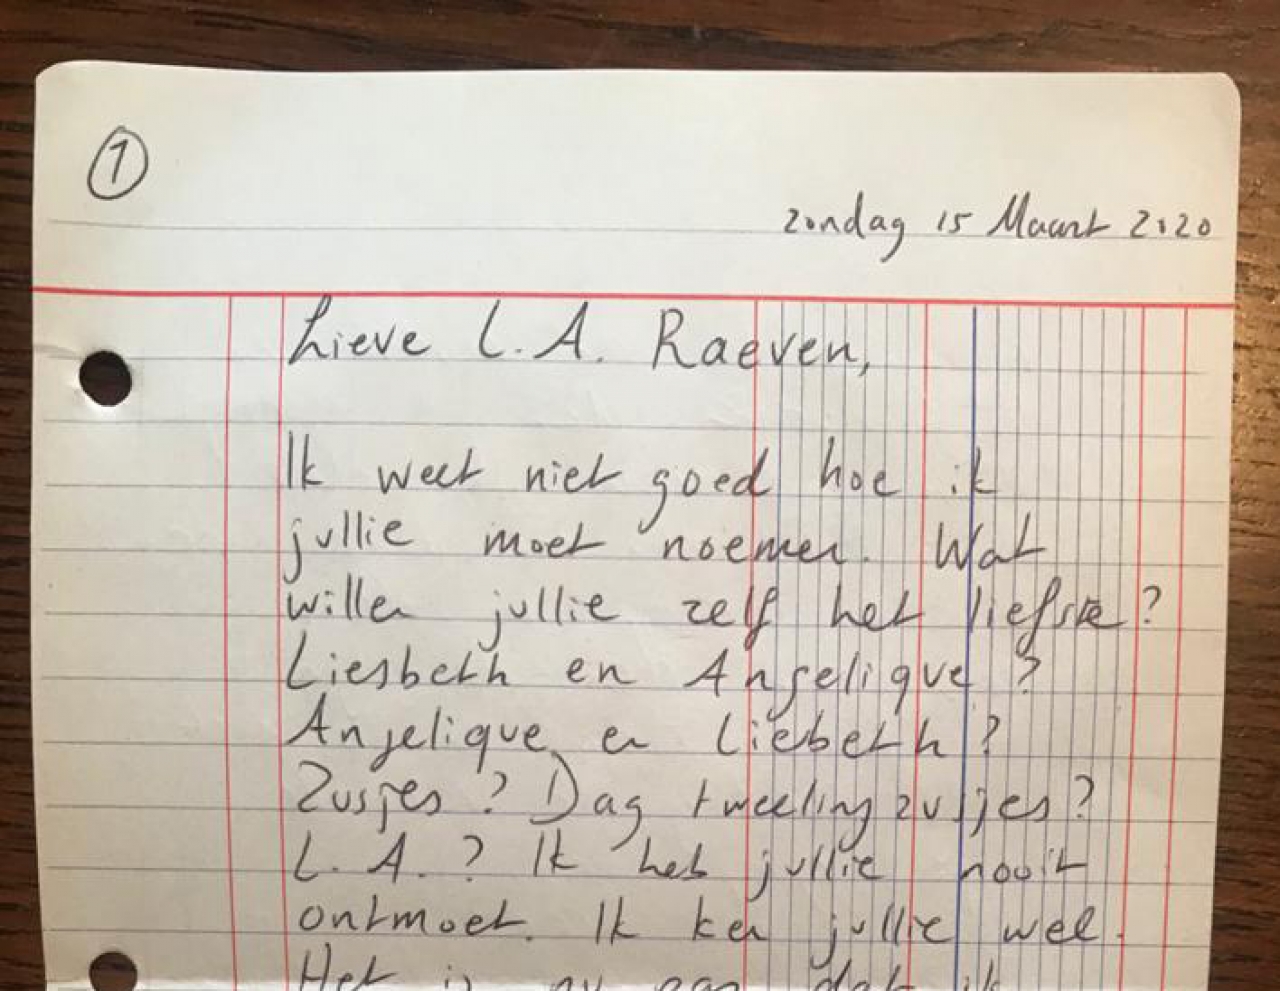 1
zondag 15 Maart 2020
Lieve L.A. Raeven,
Ik weet niet goed hoe ik
jullie moet noemen. Wat
willen jullie zelf het liefste?
Liesbeth en Angelique?
Anjelique en Liebeth?
Zusjes? Dag tweelingzusjes?
L.A.? Ik heb jullie nooit
ontmoet. Ik ken jullie wel.
Het is nu een dat ik